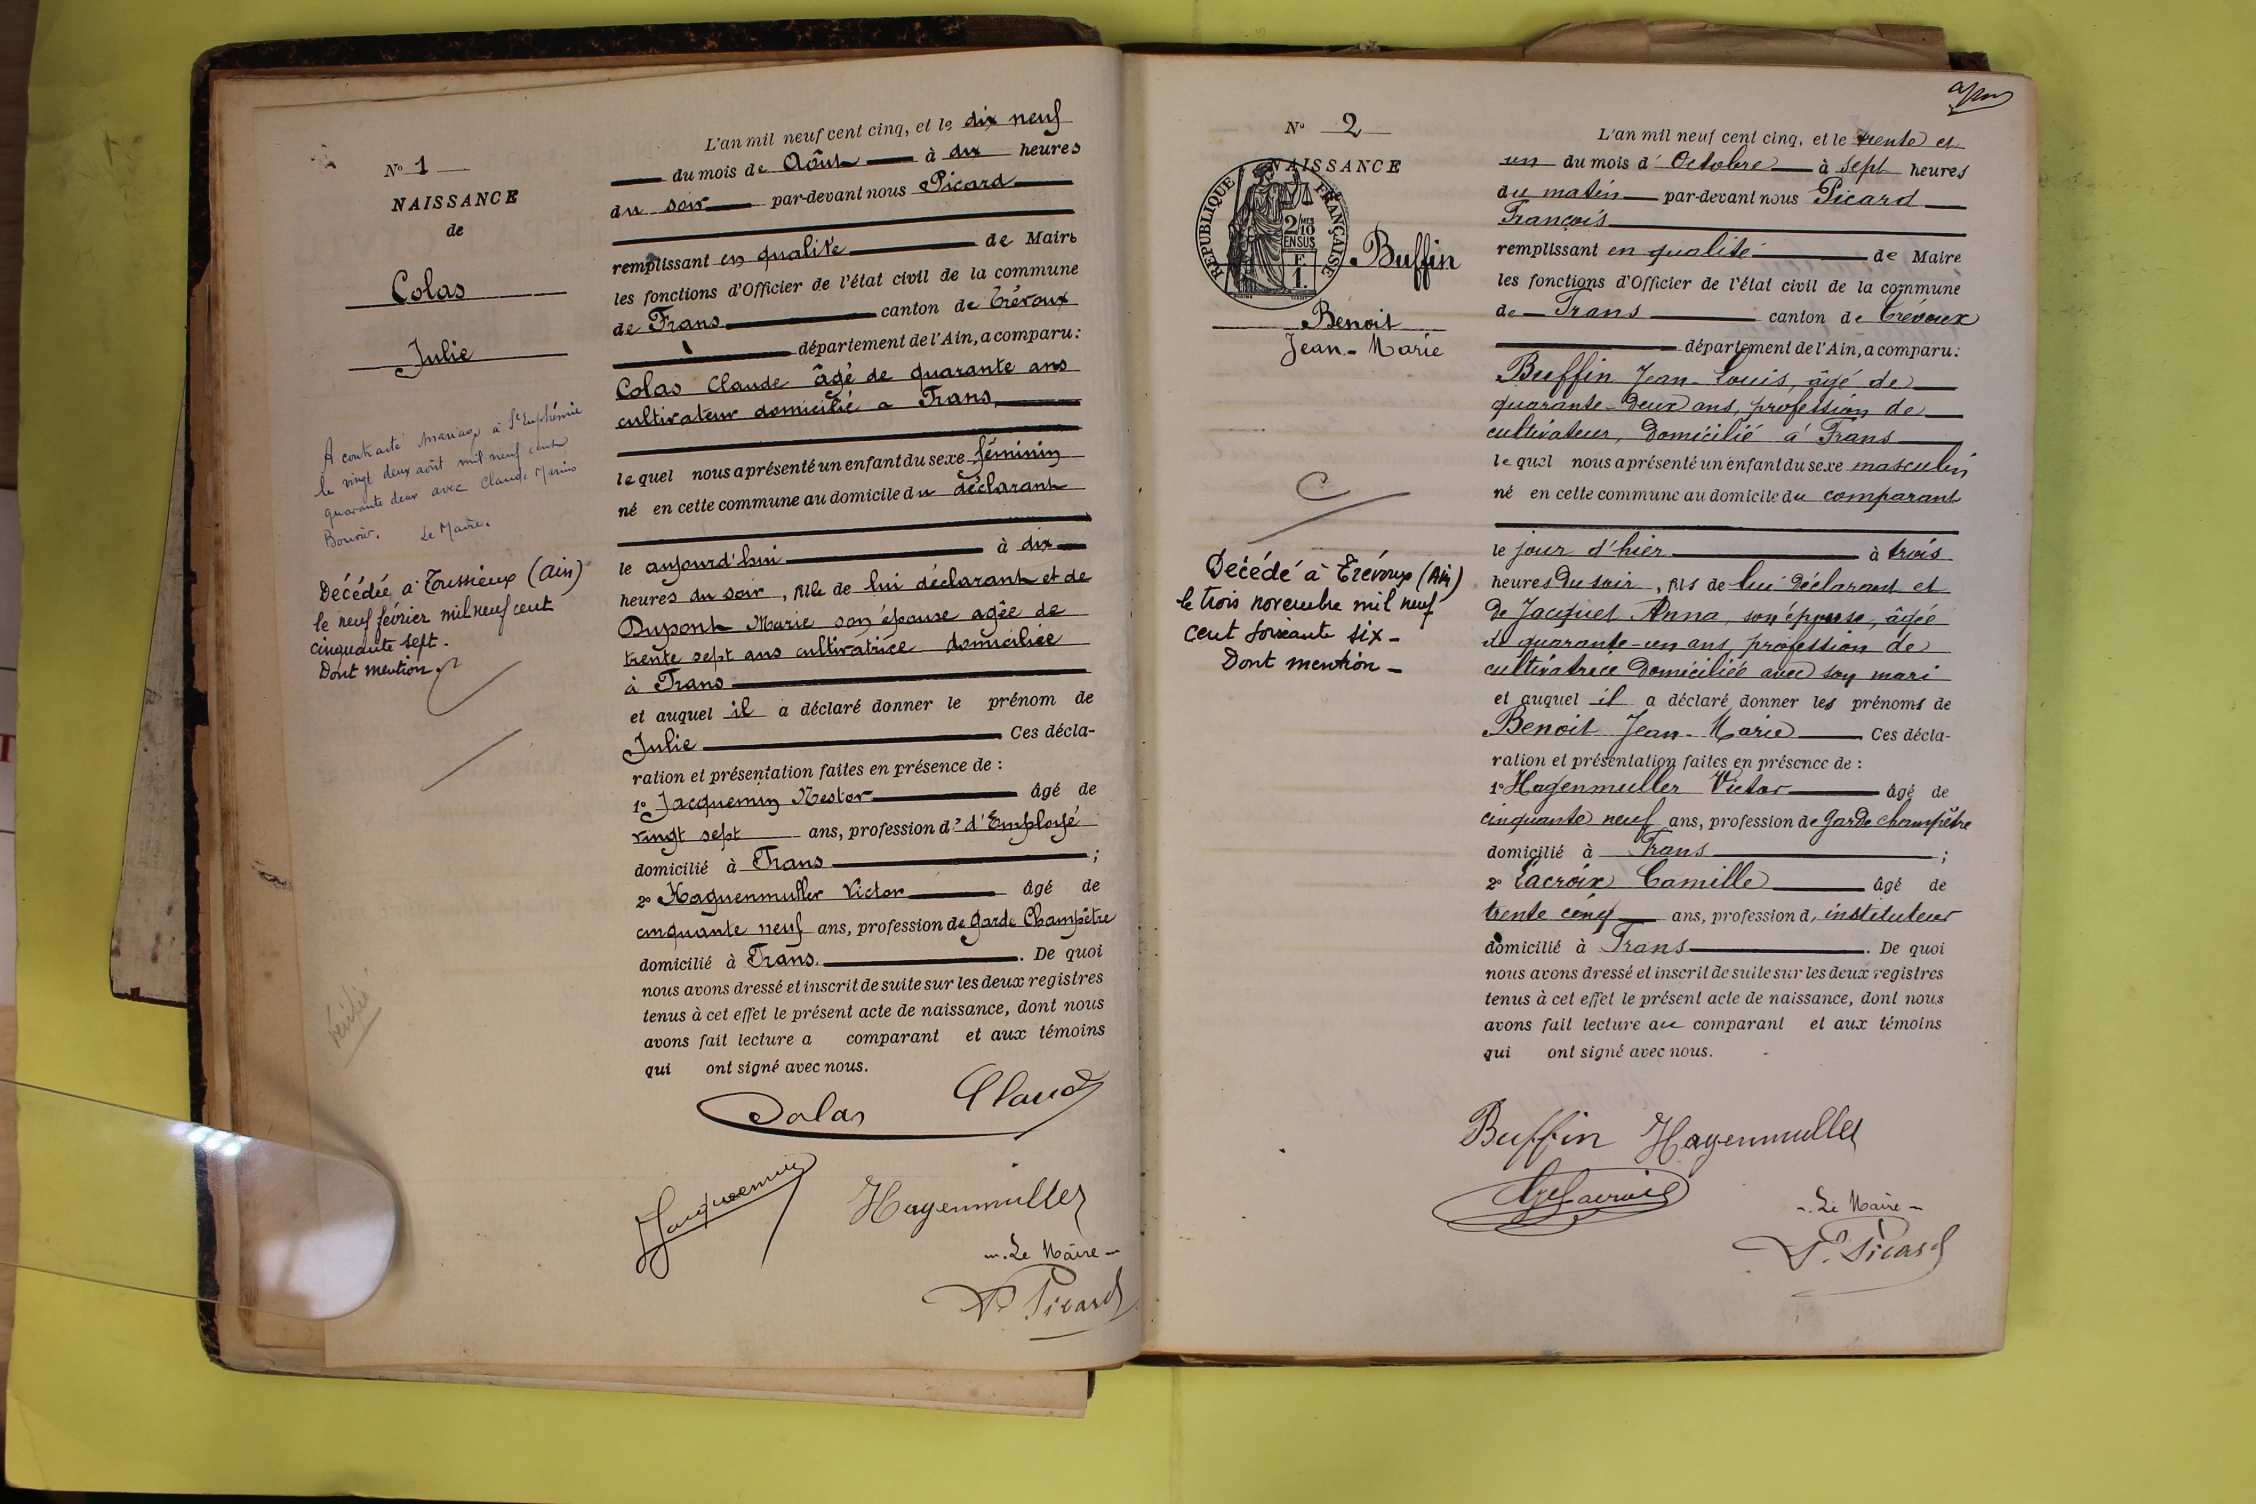 N° 1
NAISSANCE
de
Colas
Julie
A contracté mariage à St Euphémie
le vingt deux août mil neuf cent
quarante deux avec Claude Marius
Bouvier. Le Maire.
Décédée à Toussieux (Ain)
le neuf février mil neuf cent
cinquante sept.
Dont mention
L'an mil neuf cent cinq, et le dix neuf
du mois de Août à dix heures
du soir par-devant nous Picard
remplissant en qualité de Maire
les fonctions d'Officier de l'état civil de la commune
de Frans canton de Trévoux
département de l'Ain, a comparu:
Colas Claude âgé de quarante ans
cultivateur domicilié a Frans
lequel nous a présenté un enfant du sexe féminin
né en cette commune au domicile du déclarant
le aujourd'hui à dix
heures du soir, fille de lui déclarant et de
Dupont Marie son épouse agée de
trente sept ans cultivatrice domiciliée
à Frans
et auquel il a déclaré donner le prénom de
Julie Ces décla-
ration et présentation faites en présence de :
1° Jacquemin Nestor âgé de
vingt sept ans, profession d' d'Employé
domicilié à Frans ;
2° Haguenmuller Victor âgé de
cinquante neuf ans, profession de garde Champêtre
domicilié à Frans. De quoi
nous avons dressé et inscrit de suite sur les deux registres
tenus à cet effet le présent acte de naissance, dont nous
avons fait lecture a comparant et aux témoins
qui ont signé avec nous.
Colas Claude
Jacquemin Hagenmuller
Le Maire
P. Picard
N° 2
NAISSANCE
RÉPUBLIQUE FRANÇAISE
2/10
EN SUS
F
1.
Buffin
Benoit
Jean-Marie
Décédé à Trévoux (Ain)
le trois novembre mil neuf
cent soixante six -
Dont mention -
L'an mil neuf cent cinq, et le trente et
un du mois d' Octobre à sept heures
du matin par-devant nous Picard
François
remplissant en qualité de Maire
les fonctions d'Officier de l'état civil de la commune
de Frans canton de Trévoux
département de l'Ain, a comparu:
Buffin Jean-Louis, âgé de
quarante-deux ans, profession de
cultivateur, domicilié à Frans
lequel nous a présenté un enfant du sexe masculin
né en cette commune au domicile du comparant
le jour d'hier à trois
heures du soir, fils de lui déclarant et
de Jacquet Anna, son épouse, âgée
de quarante-un ans, profession de
cultivatrice domiciliée avec son mari
et auquel il a déclaré donner les prénoms de
Benoit Jean-Marie Ces décla-
ration et présentation faites en présence de :
1° Hagenmuller Victor âgé de
cinquante neuf ans, profession de garde champêtre
domicilié à Frans ;
2° Lacroix Camille âgé de
trente cinq ans, profession d' instituteur
domicilié à Frans. De quoi
nous avons dressé et inscrit de suite sur les deux registres
tenus à cet effet le présent acte de naissance, dont nous
avons fait lecture au comparant et aux témoins
qui ont signé avec nous.
Buffin Hagenmuller
Lacroix
Le Maire
P. Picard